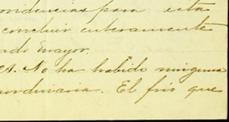 videncias para esta
concluir enteramente
ado mayor.
No ha habido ninguna
aordinaria. El frio que